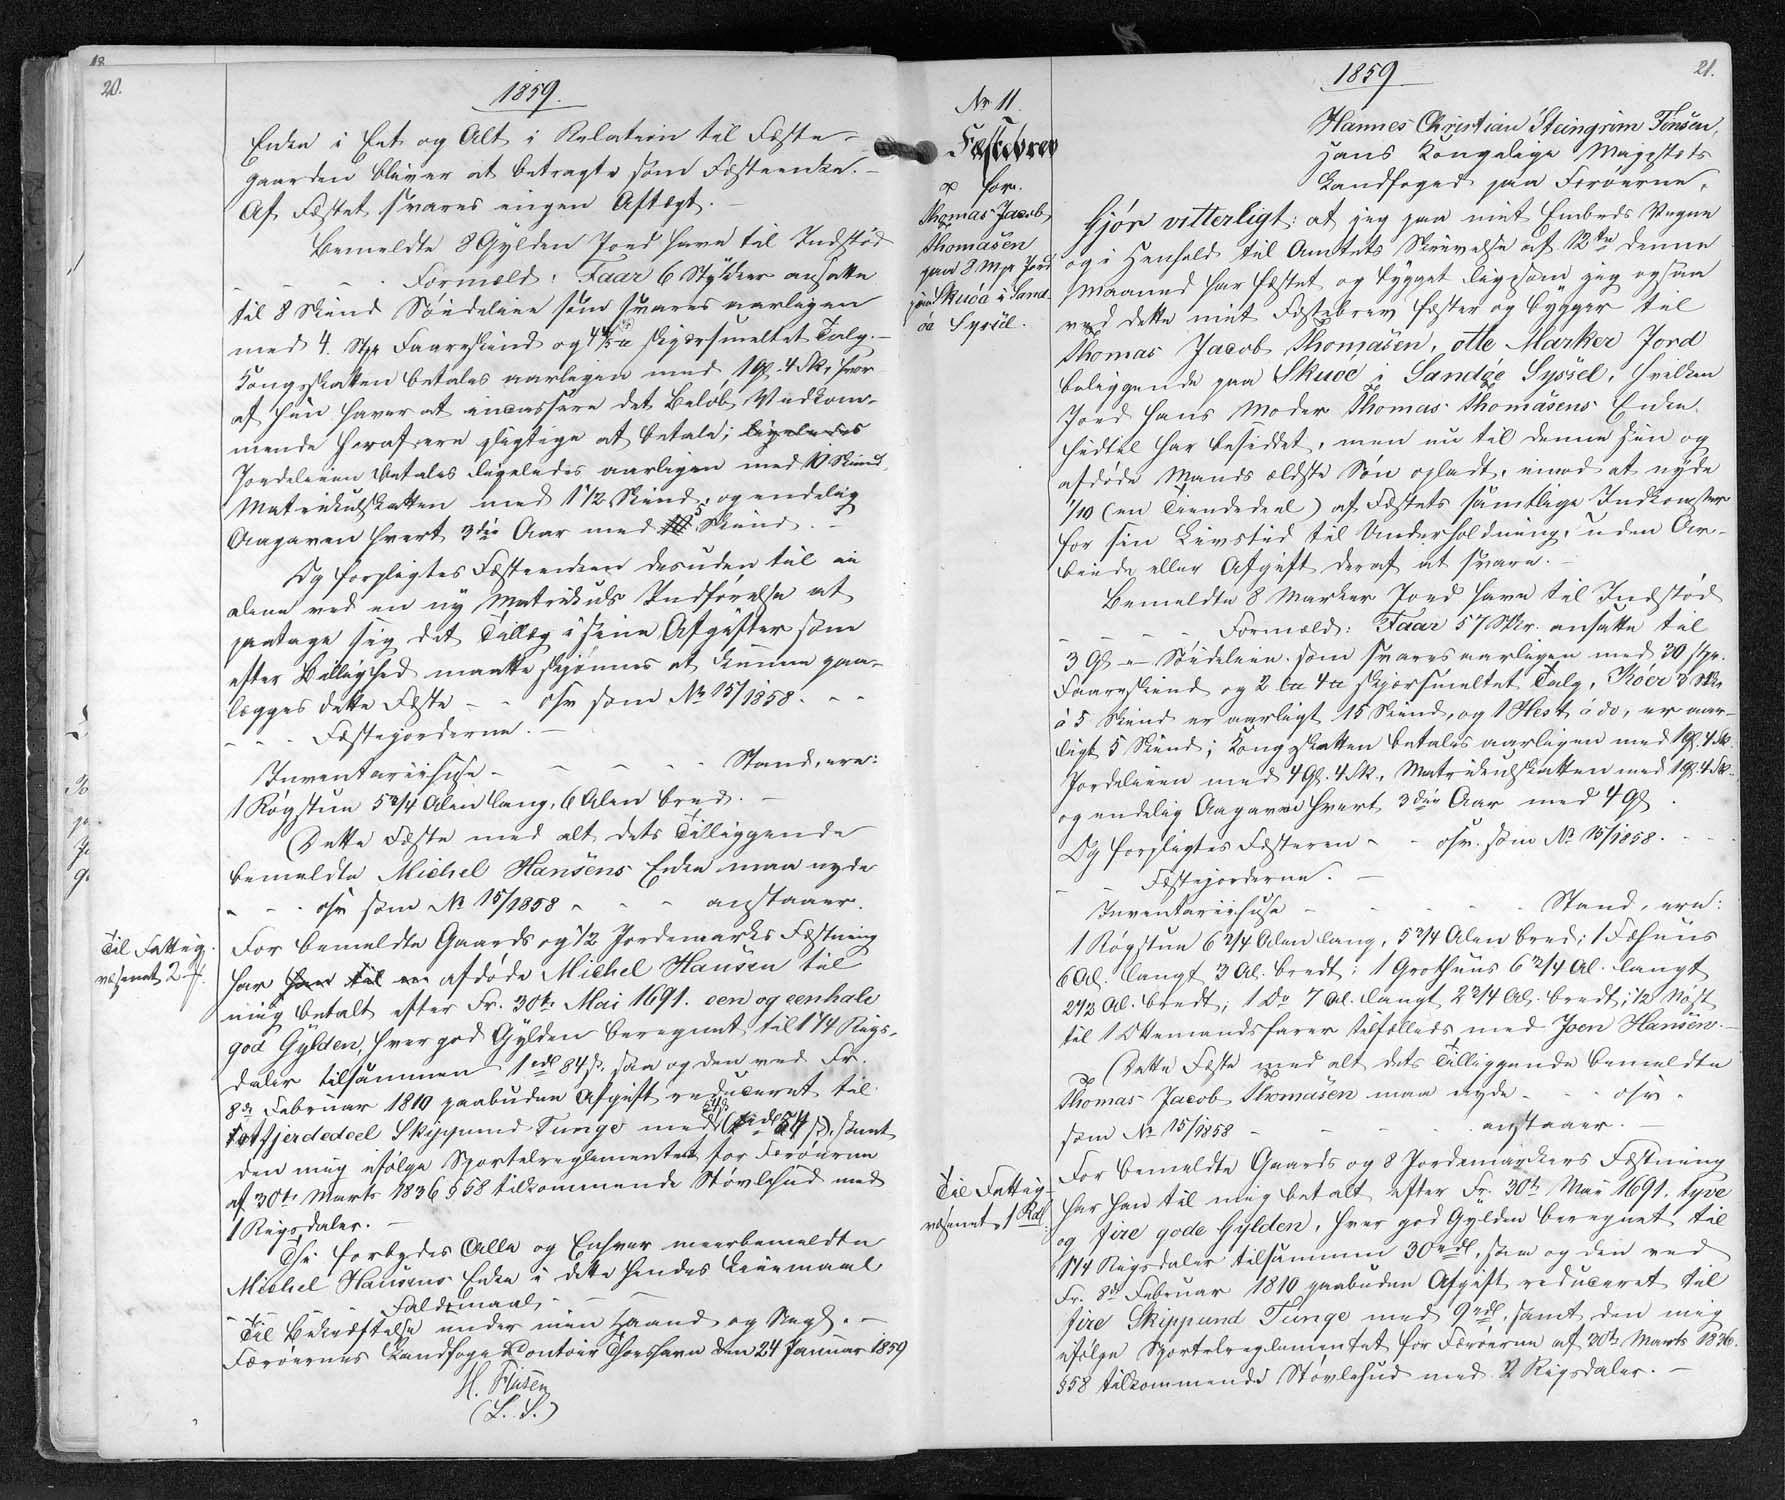 18.
20.
1859.
Enken i Eet og Alt i Relation til Fæste-
gaarden bliver at betragte som Fæsteenke. -
Af Fæstet svares ingen Aftægt. -
Bemeldte 8 Gylden Jord have til Indstød
- - - - Formæld: Faar 6 Stykker ansatte
til 8 Skind Söndeleie som svares aarligen
med 4. Stkr Faareskind og skjærsmeltet Talg. -
Kongsskatten betales aarligen med 1 Gl. 4 Sk., hvor-
af hun haver at incassere det Beløb Vedkom-
mende heraf ere pligtige at betale; ligeledes
Jordeleien betales ligeledes aarligen med 10 Skind,
Matrikulskatten med 1 1/2 Skind, og endelig
Aagaven hvert 3die Aar med 5 Skind. -
Og forpligtes Fæsteenken desuden til ei
alene ved en ny Matrikuls Indførelse at
paatage sig det Tillæg i sine Afgifter som
efter Billighed maatte skjønnes at kunne paa-
lægges dette Fæste - - osv som No 15/1858. - -
- - - Fæstejorderne. -
Inventariihuse - - - - - Stand, ere:
1 Røgstue 5 3/4 Alen lang, 6 Alen bred. -
Dette Fæste med alt dets Tilliggende
bemeldte Michel Hansens Enke maa nyde
- - - osv som No 15/1858 - - - anstaaer.
Til Fattig-
væsenet 2
For bemeldte Gaards og 1/2 Jordemarks Fæstning
har han til m afdøde Michel Hansen til
mig betalt efter Fr. 30te Mai 1691. een og eenhalv
god Gylden, hver god Gylden beregnet til 1 1/4 Rigs-
daler tilsammen 1 rdl 84 s, saa og den ved Fr.
8de Februar 1810 paabudne Afgift reduceret til
fjerdedeel Skippund Tunge med 54 s, samt
den mig ifølge Sportelreglementet for Færöerne
af 30te Marts 1836 § 58 tilkommende Støvlehud med
1 Rigsdaler. -
Thi forbydes Alle og Enhver meerbemeldte
Michel Hansens Enke i dette hendes Leiemaal
- - - Faldsmaal - - -
Til Bekræftelse under min Haand og Segl. -
Færöernes Landfoged Contoir Thorshavn den 24 Januar 1859
H. Finsen
(L. S.)
21.
1859
No 11.
Fæstebrev
for
Thomas Jacob
Thomasen
paa 8 Mkr Jord
paa Skuöe i Sand-
öe Syssel.
Hannes Christian Steingrim Finsen,
Hans Kongelige Majestets
Landfoged paa Færöerne,
Gjör vitterligt: at jeg paa mit Embeds Vegne
og i Henhold til Amtets Skrivelse af 12te denne
Maaned har fæstet og bygget ligesom jeg ogsaa
ved dette mit Fæstebrev fæster og bygger til
Thomas Jacob Thomasen, otte Marker Jord
beliggende paa Skuöe i Sandöe Syssel, hvilken
Jord hans Moder Thomas Thomasens Enke
hidtil har besiddet, men nu til denne sin og
afdøde Mands ældste Søn opladt, imod at nyde
1/10 (en Tiendedeel) af Fæstets samtlige Indkomster
for sin Livstid til Underholdning, uden Ar-
beide eller Afgift deraf at svare. -
Bemeldte 8 Marker Jord have til Indstød
- - - - Formæld: Faar 57 Stkr. ansatte til
3 Gl - Söndeleie som svares aarligen med 30 Stkr.
Faareskind og 2 Lu 4 u skjærsmeltet Talg, Köer 3 Stkr
à 5 Skind er aarligt 15 Skind, og 1 Hest à do, er aar-
ligt 5 Skind; Kongsskatten betales aarligen med 1 Gl. 4 Sk.
Jordeleien med 4 Gl. 4 Sk., Matrikulskatten med 1 Gl. 4 Sk.
og endelig Aagaven hvert 3die Aar med 4 Gl.
Og forpligtes Fæsteren - - osv. som No 15/1858. - - -
- - Fæstejorderne. -
Inventariihuse - - - - - Stand, ere:
1 Røgstue 6 2/4 Alen lang, 5 3/4 Alen bred; 1 Fæhuus
6 Al. langt 3 Al. bredt; 1 Grothuus 6 2/4 Al. langt
2 1/2 Al. bredt; 1 Do 7 Al. langt 2 3/4 Al. bredt; 1/2 Nøst
til 1 Ottemandsfarer tilfælleds med Joen Hansen. -
Dette Fæste med alt dets Tilliggende bemeldte
Thomas Jacob Thomasen maa nyde - - - osv.
som No 15/1858 - - - - - anstaaer. -
Til Fattig-
væsenet 1 Rdl
For bemeldte Gaards og 8 Jordemarkers Fæstning
har han til mig betalt efter Fr. 30te Mai 1691. tyve
og fire gode Gylden, hver god Gylden beregnet til
1 1/4 Rigsdaler tilsammen 30 rdl, saa og den ved
Fr. 8de Februar 1810 paabudne Afgift reduceret til
fire Skippund Tunge med 9 rdl, samt den mig
ifølge Sportelreglementet for Færöerne af 30te Marts 1836.
§ 58 tilkommende Støvlehud med 2 Rigsdaler. -